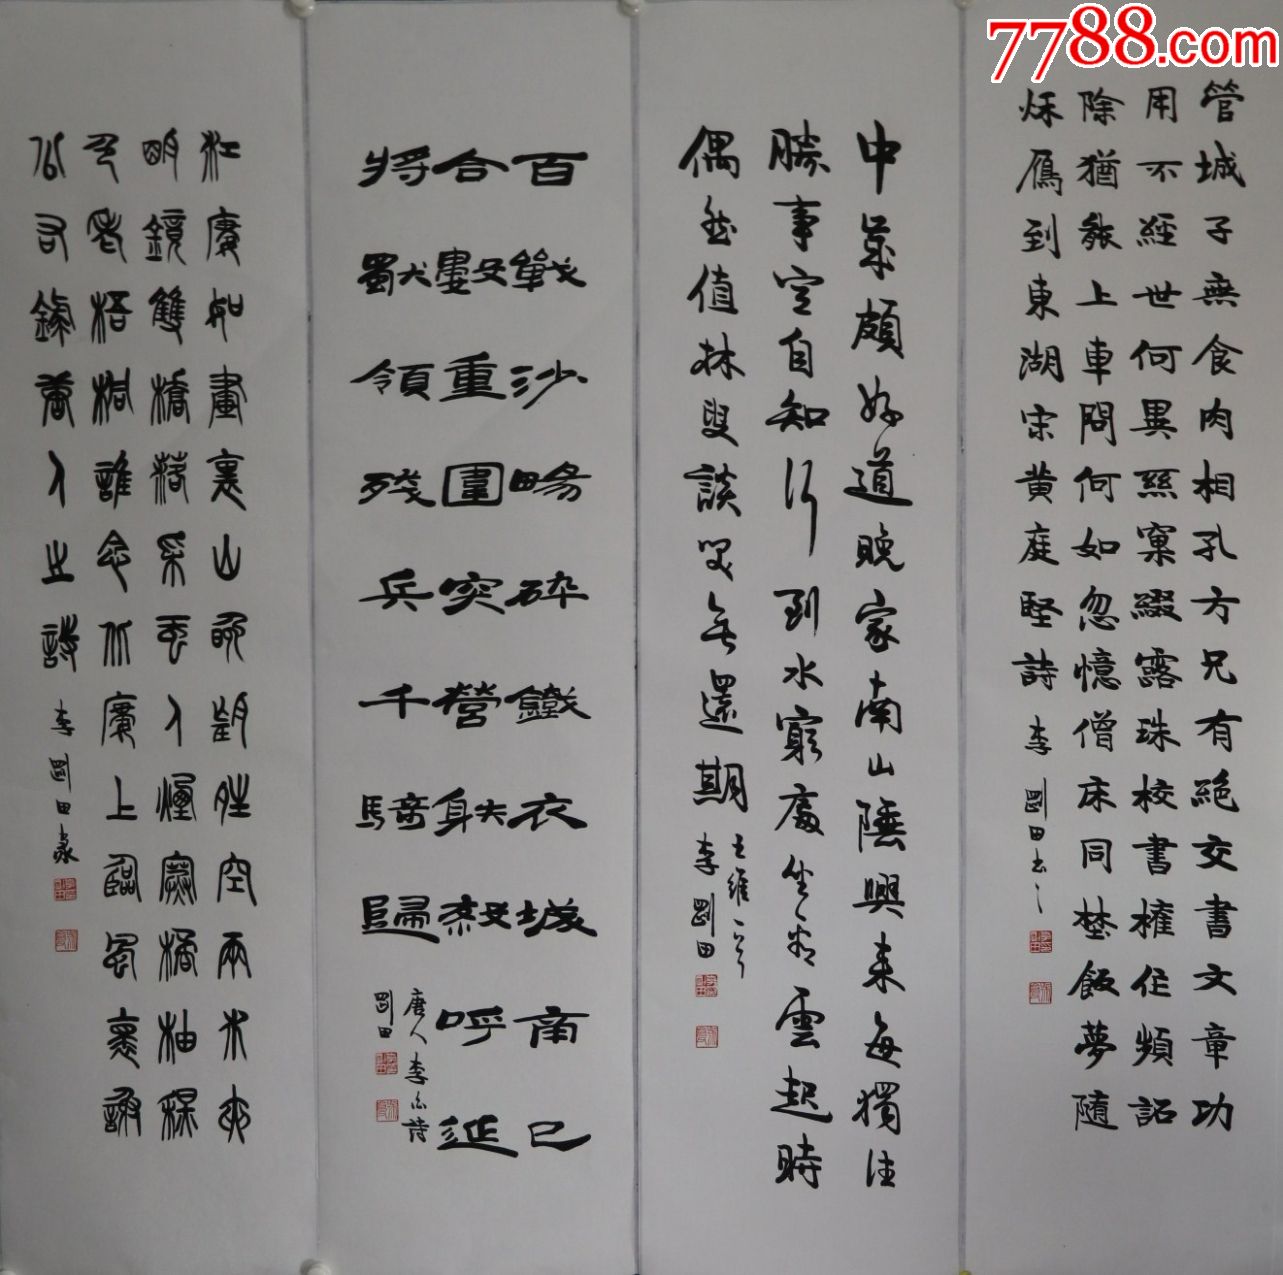 7788.com
管城子無食肉相孔方兄有絕交書文章功
用不經世何異絲窠綴露珠校書榷作頻詔
除猶能上車問何如忽憶僧床同埜飯夢隨
秋雁到東湖宋黄庭堅詩 李剛田書之
中歲頗好道晚家南山陲興来每獨往
勝事空自知行到水窮處坐看雲起時
偶然值林叟談笑無還期
王維一首
李剛田
百戰沙場碎鐵衣城南已
合數重圍突營射殺呼延
将獨領殘兵千騎歸
唐人李白詩
剛田
江城如畫裏山曉望晴空兩水夾
明鏡雙橋落采虹人煙寒橘柚秋
色老梧桐誰念北城上臨風懷謝
公右錄唐人之詩 李剛田篆